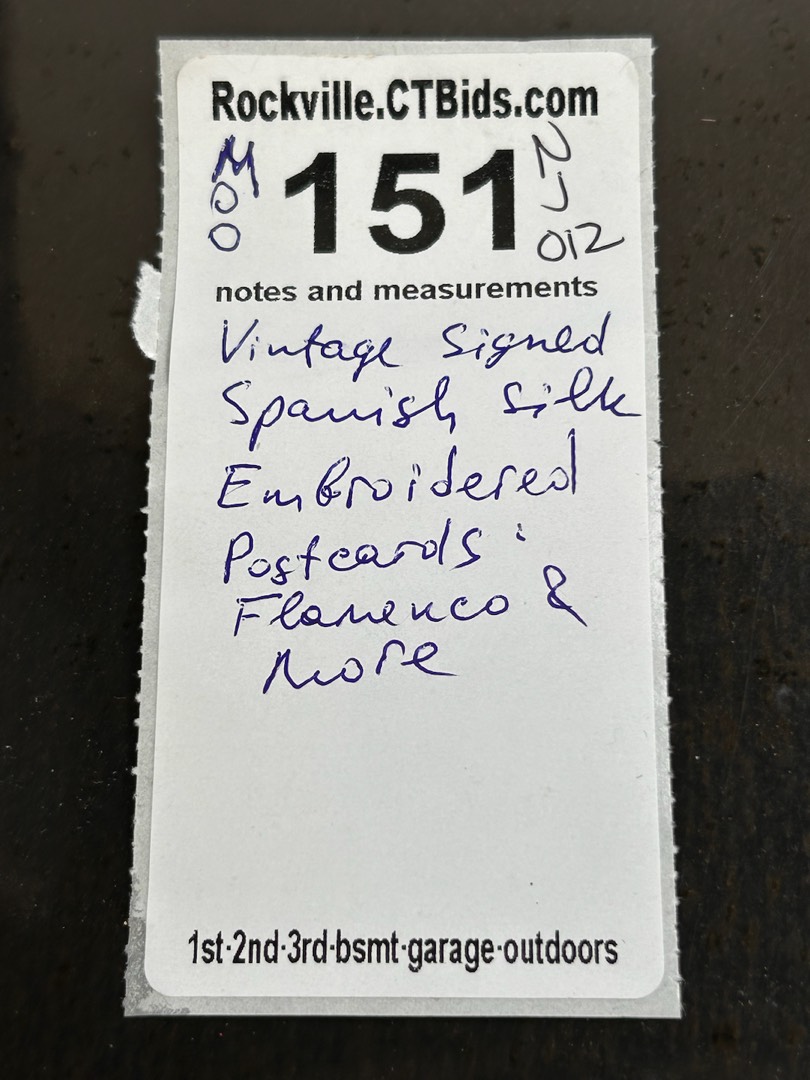 Rockville.CTBids.com
M
00
151
N
J
012
notes and measurements
Vintage Signed
Spanish Silk
Embroidered
Postcards :
Flamenco &
More
1st·2nd·3rd·bsmt·garage·outdoors